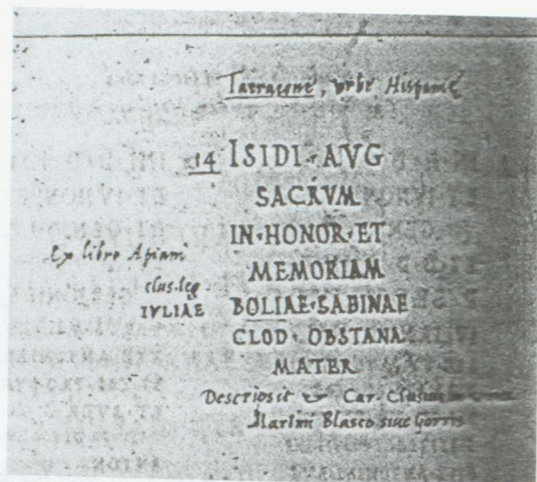 Tarracone, urbe Hispaniae
14 ISIDI · AVG
SACRVM
IN · HONOR · ET
MEMORIAM
BOLIAE · SABINAE
CLOD · OBSTANA
MATER
Ex libro Apiani
clus. leg
IVLIAE
Descripsit & Car. Clusius
Martini Blasco sive Gorris